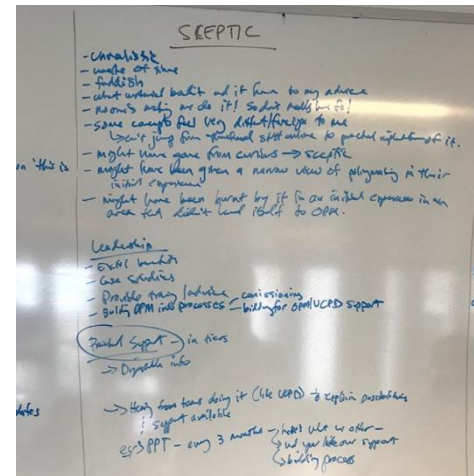 SKEPTIC
- unrealistic
- waste of time
- faddish
- what material benefit and it have to my advice
- noone's making me do it! So don't need to!
- some concepts feel very distant/foreign to me
↳ can't jump from theoretical to practical application of it.
- might have gone from curious → skeptic
- might have been given a narrow view of policymaking in their
initial experience
- might have been burnt by it in an initial experience in an
area that didn't lend itself to OPM.
on 'this is
Leadership
- Extol benefits
- Case studies
- Provide training/advice
- commissioning
- Build OPM into processes - bidding for OPM/UCPD support
Practical Support - in tiers
→ Digestible info
→ Hearing from teams doing it (like UCPD) to explain possibilities
& support available
eg → PPT - every 3 months → here's what we offer -
↳ would you like our support
↳ bidding process